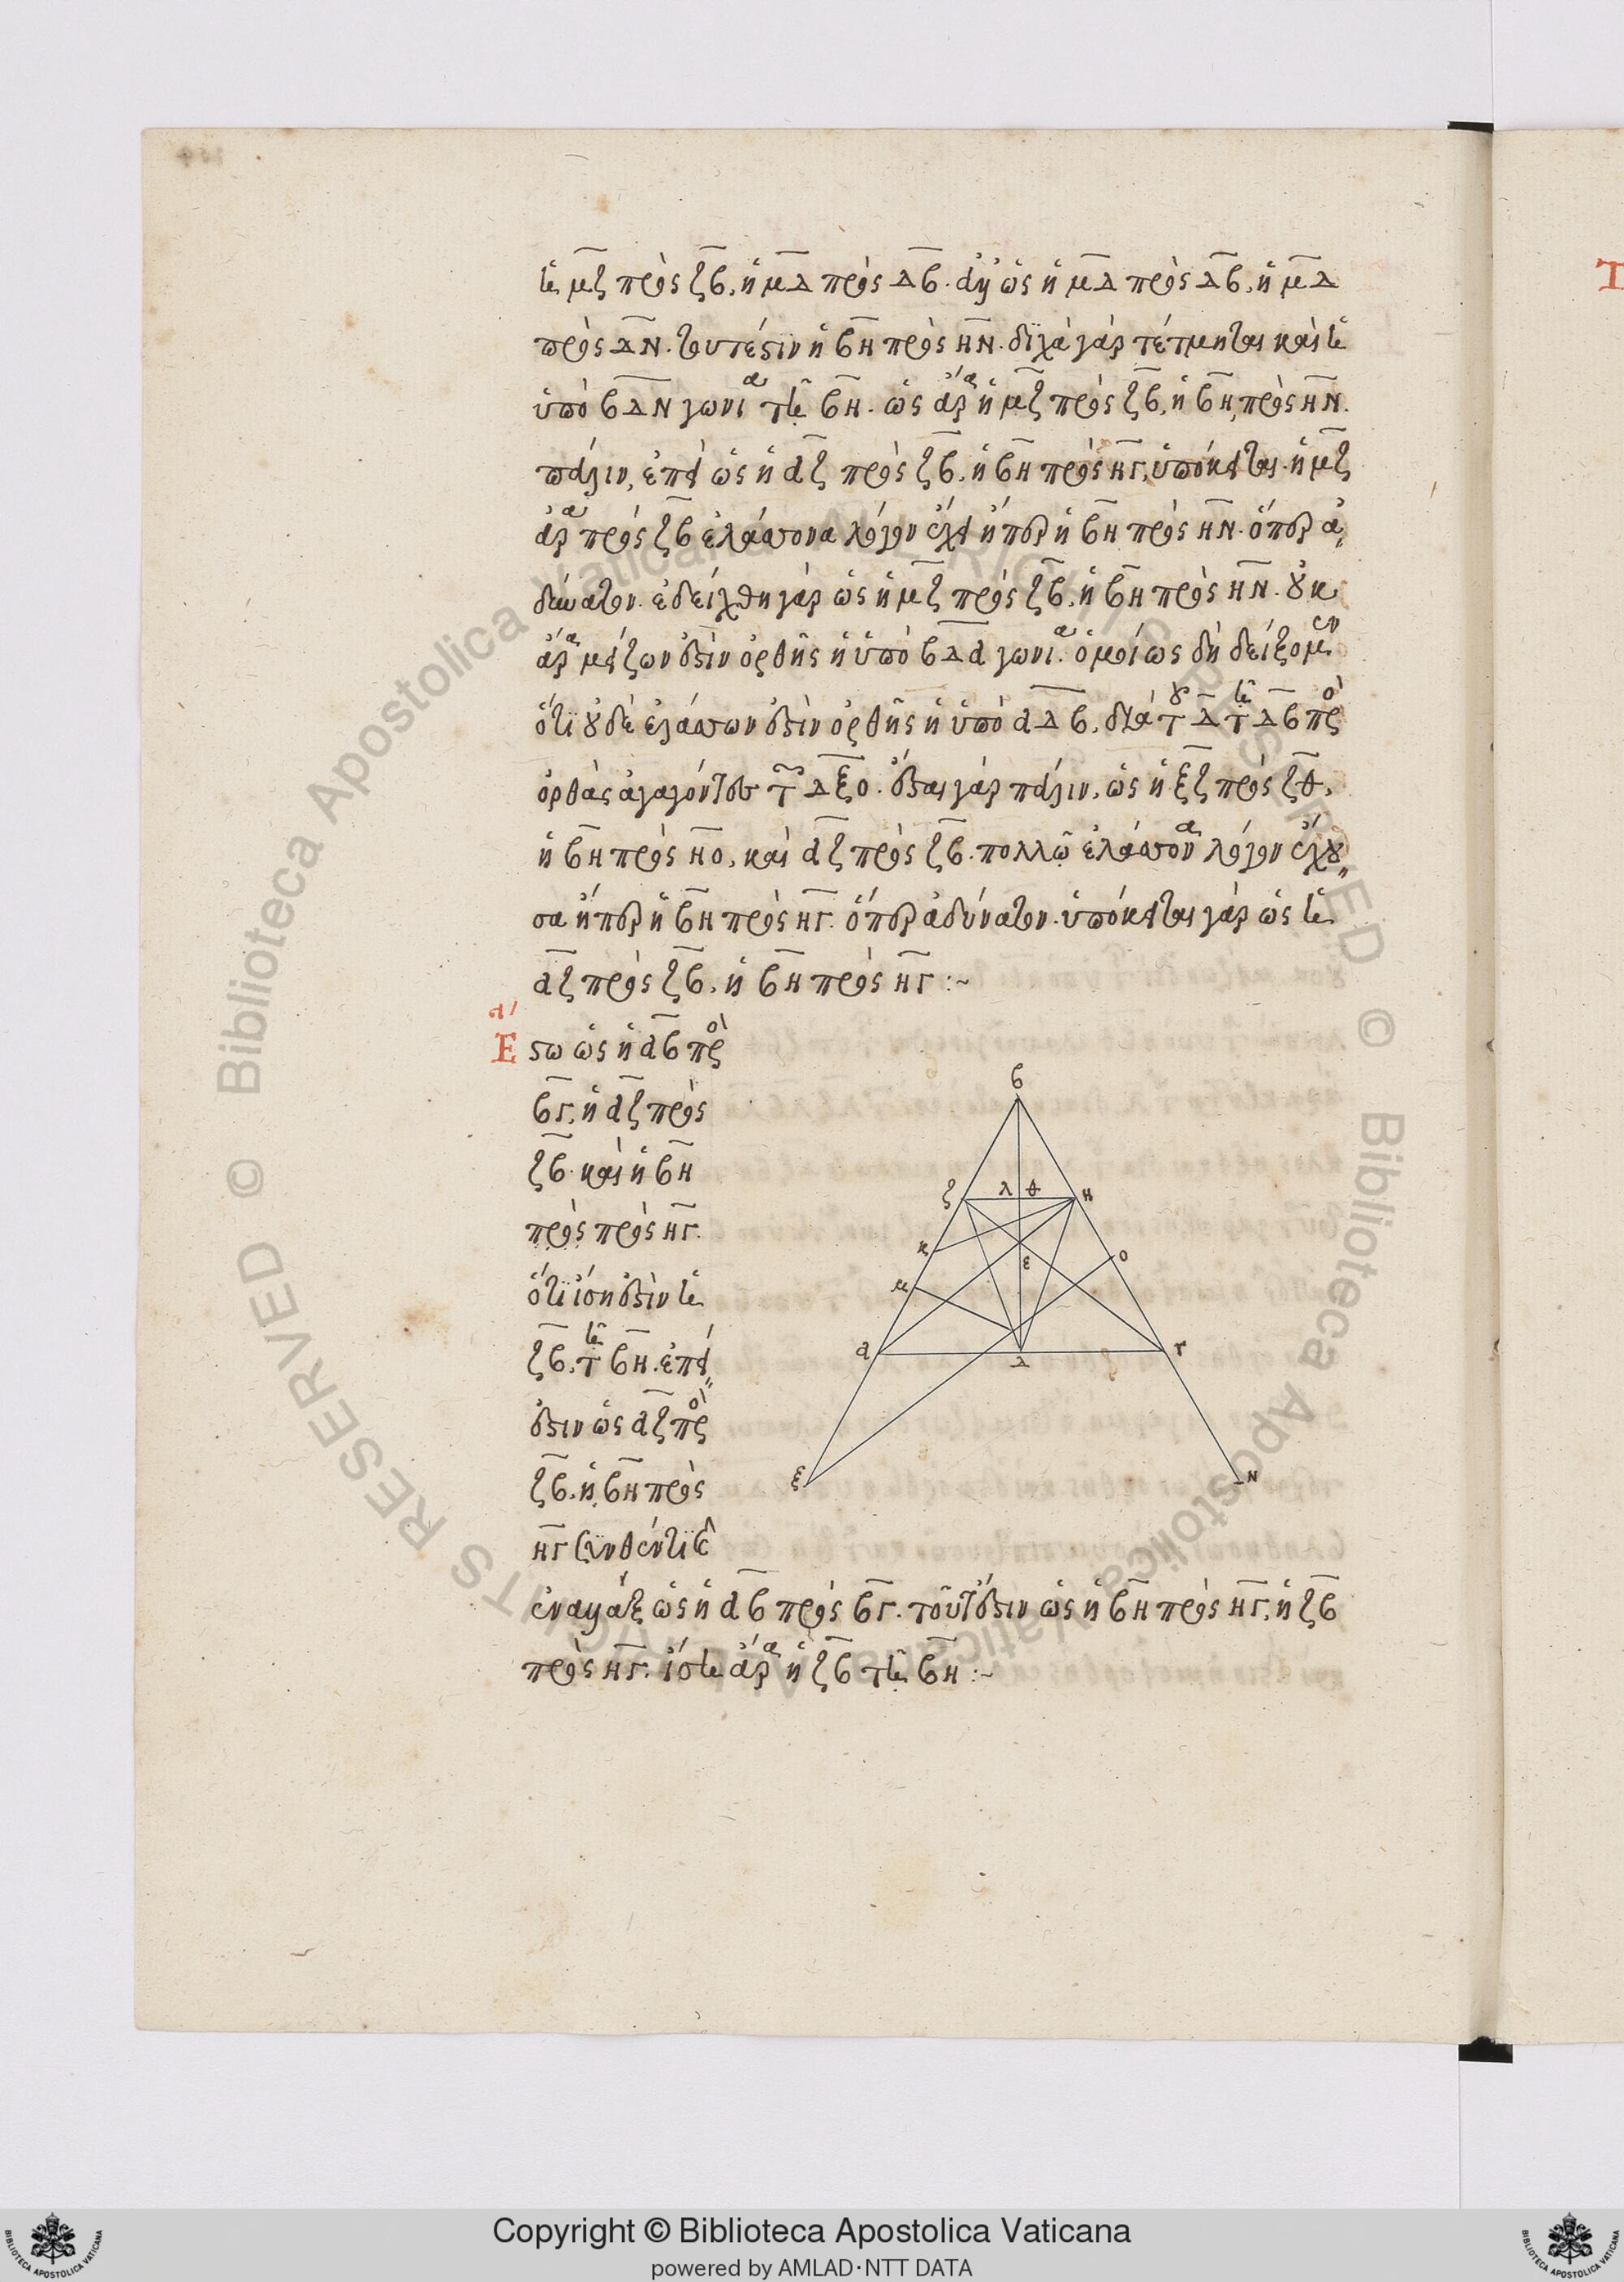 ἡ μζ πρὸς ζβ, ἡ μΔ πρὸς Δβ. ἀλλ' ὡς ἡ μΔ πρὸς Δβ, ἡ μΔ
πρὸς ΔΝ. τουτέστιν ἡ βΗ πρὸς ΗΝ. δίχα γὰρ τέτμηται καὶ ἡ
ὑπὸ βΔΝ γωνία τῇ βΗ. ὡς ἄρα ἡ μζ πρὸς ζβ, ἡ βΗ πρὸς ΗΝ.
πάλιν, ἐπεὶ ὡς ἡ αζ πρὸς ζβ, ἡ βΗ πρὸς ΗΓ, ὑπόκειται. ἡ μζ
ἄρα πρὸς ζβ ἐλάττονα λόγον ἔχει ἤπερ ἡ βΗ πρὸς ΗΝ. ὅπερ ἀ
δύνατον. ἐδείχθη γὰρ ὡς ἡ μζ πρὸς ζβ, ἡ βΗ πρὸς ΗΝ. οὐκ
ἄρα μείζων ἐστὶν ὀρθῆς ἡ ὑπὸ βΔα γωνία. ὁμοίως δὴ δείξομεν
ὅτι οὐδὲ ἐλάττων ἐστὶν ὀρθῆς ἡ ὑπὸ αΔβ, διὰ τοῦ Δ τῇ Δβ πρὸς
ὀρθὰς ἀγαγόντες τὴν Δξο. ἔσται γὰρ πάλιν, ὡς ἡ ξζ πρὸς ζθ,
ἡ βΗ πρὸς Ηο, καὶ αζ πρὸς ζβ. πολλῷ ἐλάττονα λόγον ἔχου
σα ἤπερ ἡ βΗ πρὸς ΗΓ. ὅπερ ἀδύνατον. ὑπόκειται γὰρ ὡς ἡ
αζ πρὸς ζβ, ἡ βΗ πρὸς ΗΓ :~
α'
Εστω ὡς ἡ αβ πρὸς
βΓ, ἡ αζ πρὸς
ζβ. καὶ ἡ βΗ
πρὸς πρὸς ΗΓ.
ὅτι ἴση ἐστὶν ἡ
ζβ, τῇ βΗ. ἐπεί
ἐστιν ὡς αζ πρὸς
ζβ, ἡ βΗ πρὸς
ΗΓ συνθέντι καὶ
ἐναλλάξ ὡς ἡ αβ πρὸς βΓ. τουτέστιν ὡς ἡ βΗ πρὸς ΗΓ, ἡ ζβ
πρὸς ΗΓ. ἴση ἄρα ἡ ζβ τῇ βΗ :~
β
ζ λ θ Η
κ ε ο
μ
α Δ Γ
ξ Ν
Τ
© Biblioteca Apostolica Vaticana ALL RIGHTS RESERVED
© Biblioteca Apostolica Vaticana ALL RIGHTS RESERVED
Copyright © Biblioteca Apostolica Vaticana
powered by AMLAD·NTT DATA
BIBLIOTECA APOSTOLICA VATICANA
BIBLIOTECA APOSTOLICA VATICANA